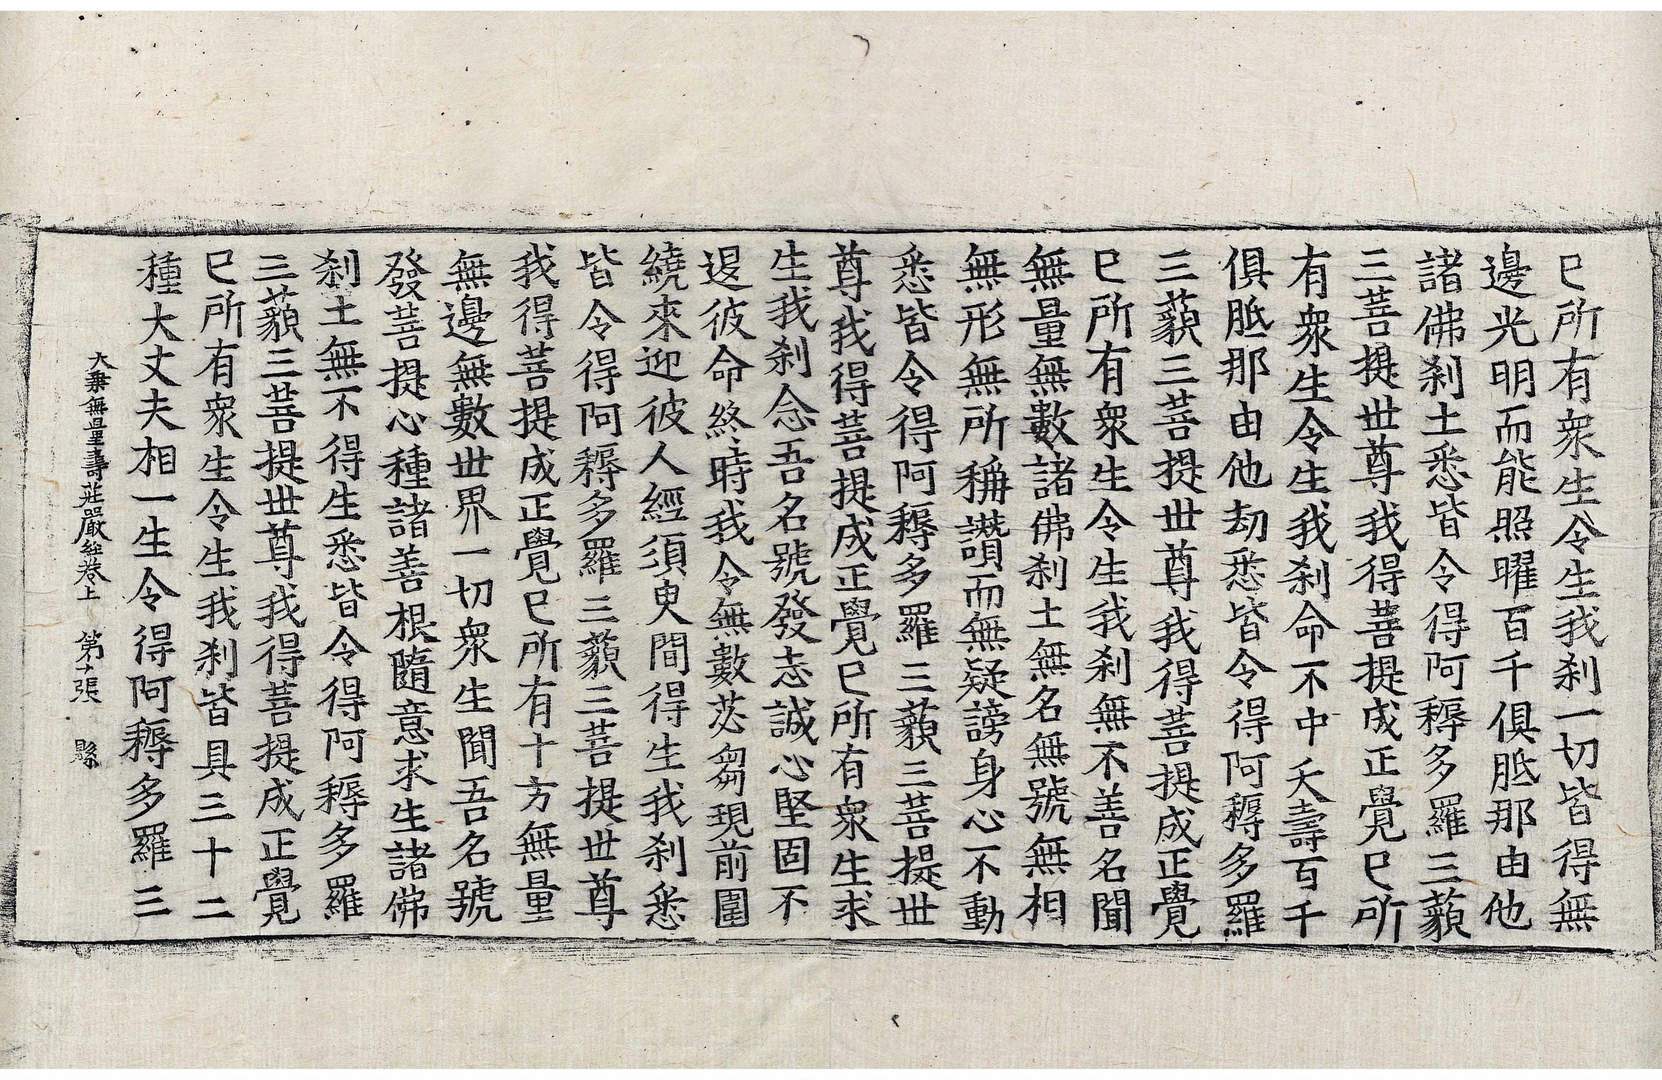 已所有衆生令生我刹一切皆得無
邊光明而能照曜百千俱胝那由他
諸佛刹土悉皆令得阿耨多羅三藐
三菩提世尊我得菩提成正覺已所
有衆生令生我刹命不中夭壽百千
俱胝那由他劫悉皆令得阿耨多羅
三藐三菩提世尊我得菩提成正覺
已所有衆生令生我刹無不善名聞
無量無數諸佛刹土無名無號無相
無形無所稱讚而無疑謗身心不動
悉皆令得阿耨多羅三藐三菩提世
尊我得菩提成正覺已所有衆生求
生我刹念吾名號發志誠心堅固不
退彼命終時我令無數苾芻現前圍
繞來迎彼人經須臾間得生我刹悉
皆令得阿耨多羅三藐三菩提世尊
我得菩提成正覺已所有十方無量
無邊無數世界一切衆生聞吾名號
發菩提心種諸善根隨意求生諸佛
刹土無不得生悉皆令得阿耨多羅
三藐三菩提世尊我得菩提成正覺
已所有衆生令生我刹皆具三十二
種大丈夫相一生令得阿耨多羅三
大乘無量壽莊嚴經卷上 第十張 縣